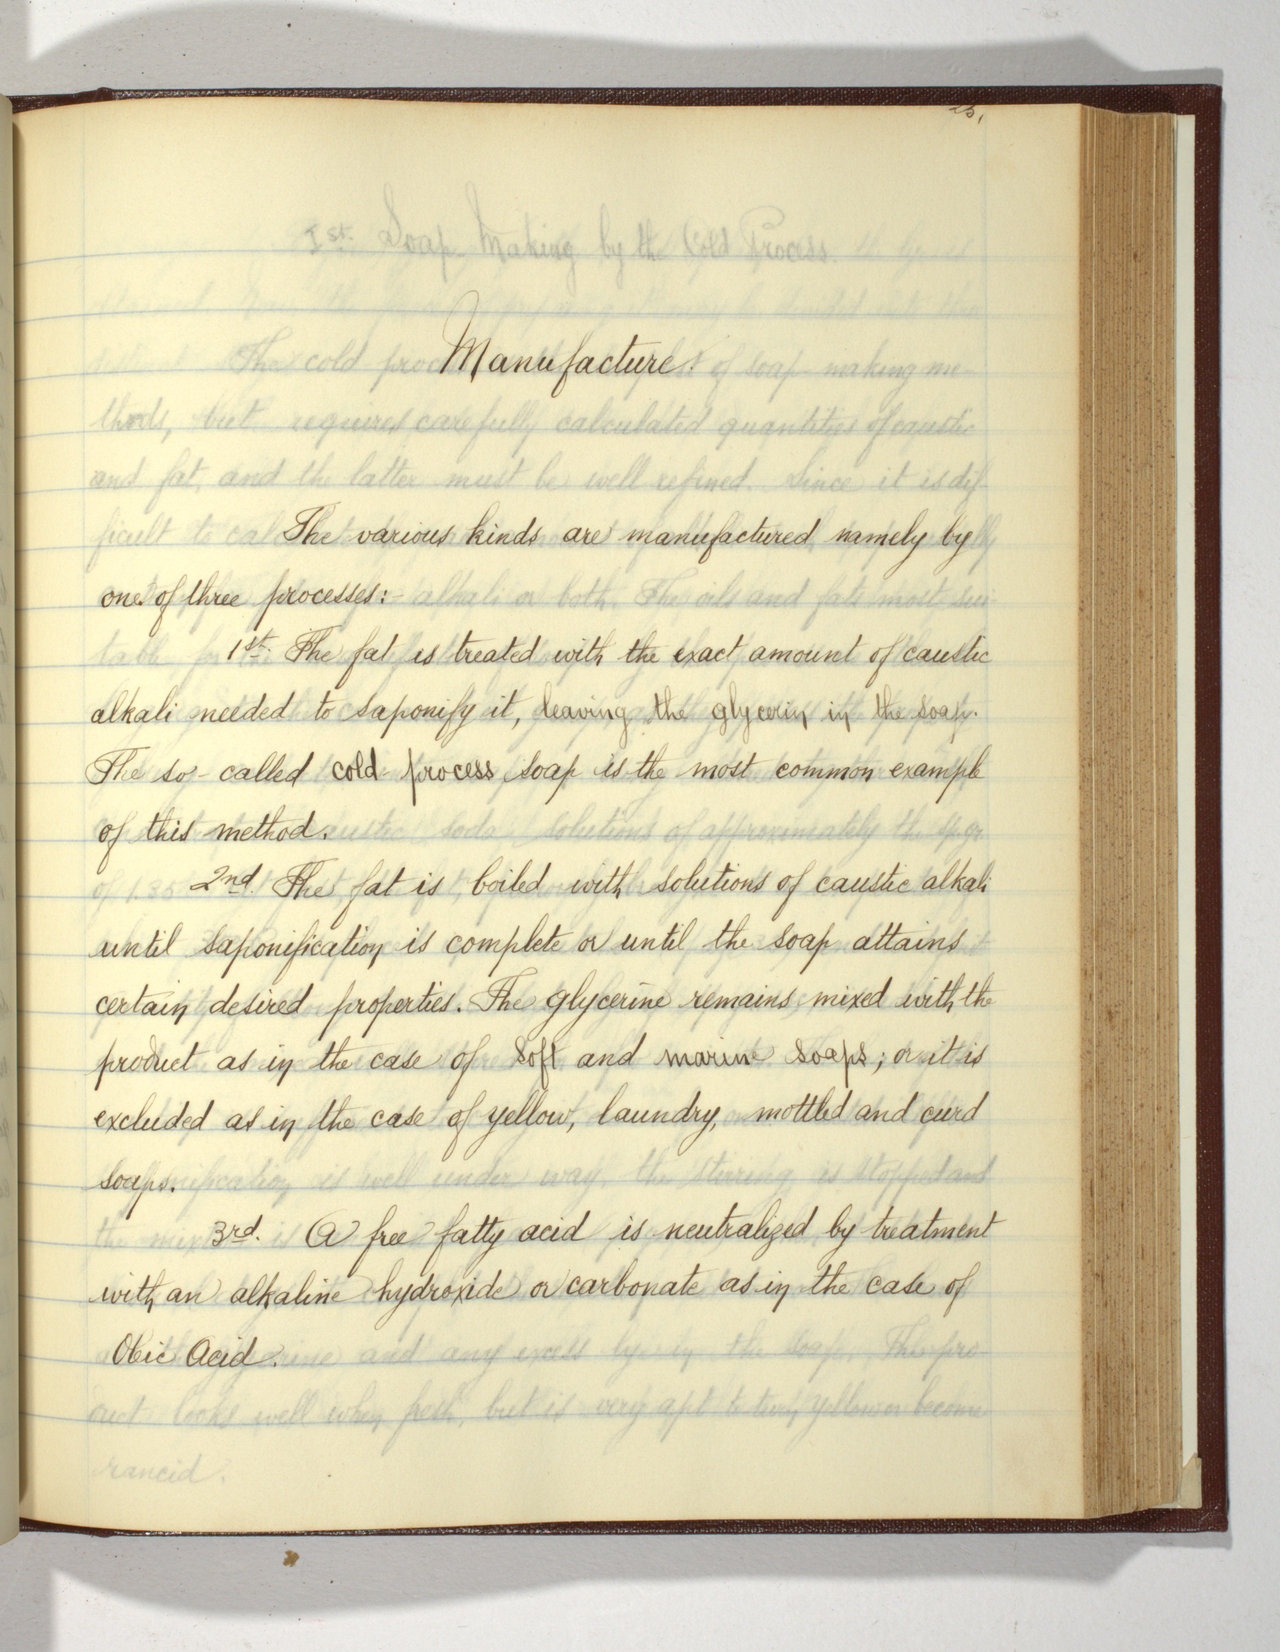 25.
Manufacture.
The various kinds are manufactured namely by
one of three processes:-
1st. The fat is treated with the exact amount of caustic
alkali needed to saponify it, leaving the glycerin in the soap.
The so-called cold process soap is the most common example
of this method.
2nd. The fat is boiled with solutions of caustic alkali
until saponification is complete or until the soap attains
certain desired properties. The glycerine remains mixed with the
product as in the case of soft and marine soaps; or it is
excluded as in the case of yellow, laundry, mottled and curd
soaps.
3rd. A free fatty acid is neutralized by treatment
with an alkaline hydroxide or carbonate as in the case of
Oleic Acid.